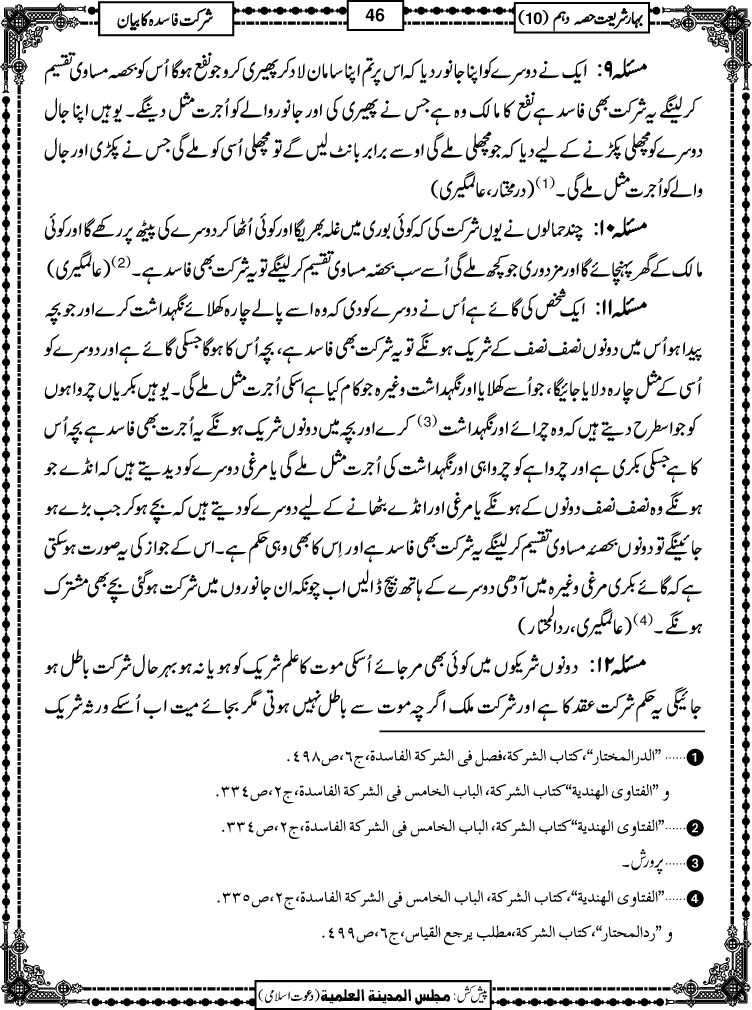 بہار شریعت حصہ دہم (10)
46
شرکت فاسدہ کا بیان
مسئلہ ۹: ایک نے دوسرے کو اپنا جانور دیا کہ اس پر تم اپنا سامان لاد کر پھیری کرو جو نفع ہوگا اُس کو بحصہ مساوی تقسیم
کرلینگے یہ شرکت بھی فاسد ہے نفع کا مالک وہ ہے جس نے پھیری کی اور جانور والے کو اُجرت مثل دینگے۔ یوہیں اپنا جال
دوسرے کو مچھلی پکڑنے کے لیے دیا کہ جو مچھلی ملے گی اوسے برابر بانٹ لیں گے تو مچھلی اُسی کو ملے گی جس نے پکڑی اور جال
والے کو اُجرت مثل ملے گی۔(1) (درمختار، عالمگیری)
مسئلہ ۱۰: چند حمالوں نے یوں شرکت کی کہ کوئی بوری میں غلہ بھریگا اور کوئی اُٹھا کر دوسرے کی پیٹھ پر رکھے گا اور کوئی
مالک کے گھر پہنچائے گا اور مزدوری جو کچھ ملے گی اُسے سب بحصّہ مساوی تقسیم کرلینگے تو یہ شرکت بھی فاسد ہے۔(2) (عالمگیری)
مسئلہ ۱۱: ایک شخص کی گائے ہے اُس نے دوسرے کو دی کہ وہ اسے پالے چارہ کھلائے نگہداشت کرے اور جو بچہ
پیدا ہو اُس میں دونوں نصف نصف کے شریک ہونگے تو یہ شرکت بھی فاسد ہے، بچہ اُس کا ہوگا جسکی گائے ہے اور دوسرے کو
اُسی کے مثل چارہ دلایا جائیگا، جو اُسے کھلایا اور نگہداشت وغیرہ جو کام کیا ہے اسکی اُجرت مثل ملے گی۔ یوہیں بکریاں چرواہوں
کو جو اسطرح دیتے ہیں کہ وہ چرائے اور نگہداشت(3) کرے اور بچہ میں دونوں شریک ہونگے یہ اُجرت بھی فاسد ہے بچہ اُس
کا ہے جسکی بکری ہے اور چرواہے کو چرواہی اور نگہداشت کی اُجرت مثل ملے گی یا مرغی دوسرے کو دیدیتے ہیں کہ انڈے جو
ہونگے وہ نصف نصف دونوں کے ہونگے یا مرغی اور انڈے بٹھانے کے لیے دوسرے کو دیتے ہیں کہ بچے ہوکر جب بڑے ہو
جائینگے تو دونوں بحصہ مساوی تقسیم کرلینگے یہ شرکت بھی فاسد ہے اور اِس کا بھی وہی حکم ہے۔ اس کے جواز کی یہ صورت ہوسکتی
ہے کہ گائے بکری مرغی وغیرہ میں آدھی دوسرے کے ہاتھ بیچ ڈالیں اب چونکہ ان جانوروں میں شرکت ہوگئی بچے بھی مشترک
ہونگے۔(4) (عالمگیری، ردالمحتار)
مسئلہ ۱۲: دونوں شریکوں میں کوئی بھی مرجائے اُسکی موت کا علم شریک کو ہو یا نہ ہو بہرحال شرکت باطل ہو
جائیگی یہ حکم شرکت عقد کا ہے اور شرکت ملک اگرچہ موت سے باطل نہیں ہوتی مگر بجائے میت اب اُسکے ورثہ شریک
1 ......"الدرالمختار"، کتاب الشرکة، فصل فی الشرکة الفاسدة، ج٦، ص٤٩٨.
و "الفتاوی الهندية" کتاب الشركة، الباب الخامس فی الشركة الفاسدة، ج٢، ص٣٣٤.
2 ......"الفتاوی الهندية" کتاب الشركة، الباب الخامس فی الشركة الفاسدة، ج٢، ص٣٣٤.
3 ......پرورش۔
4 ......"الفتاوی الهندية"، کتاب الشركة، الباب الخامس فی الشركة الفاسدة، ج٢، ص٣٣٥.
و "ردالمحتار"، کتاب الشركة، مطلب يرجع القياس، ج٦، ص٤٩٩.
پیش کش: مجلس المدينة العلمية (دعوت اسلامی)